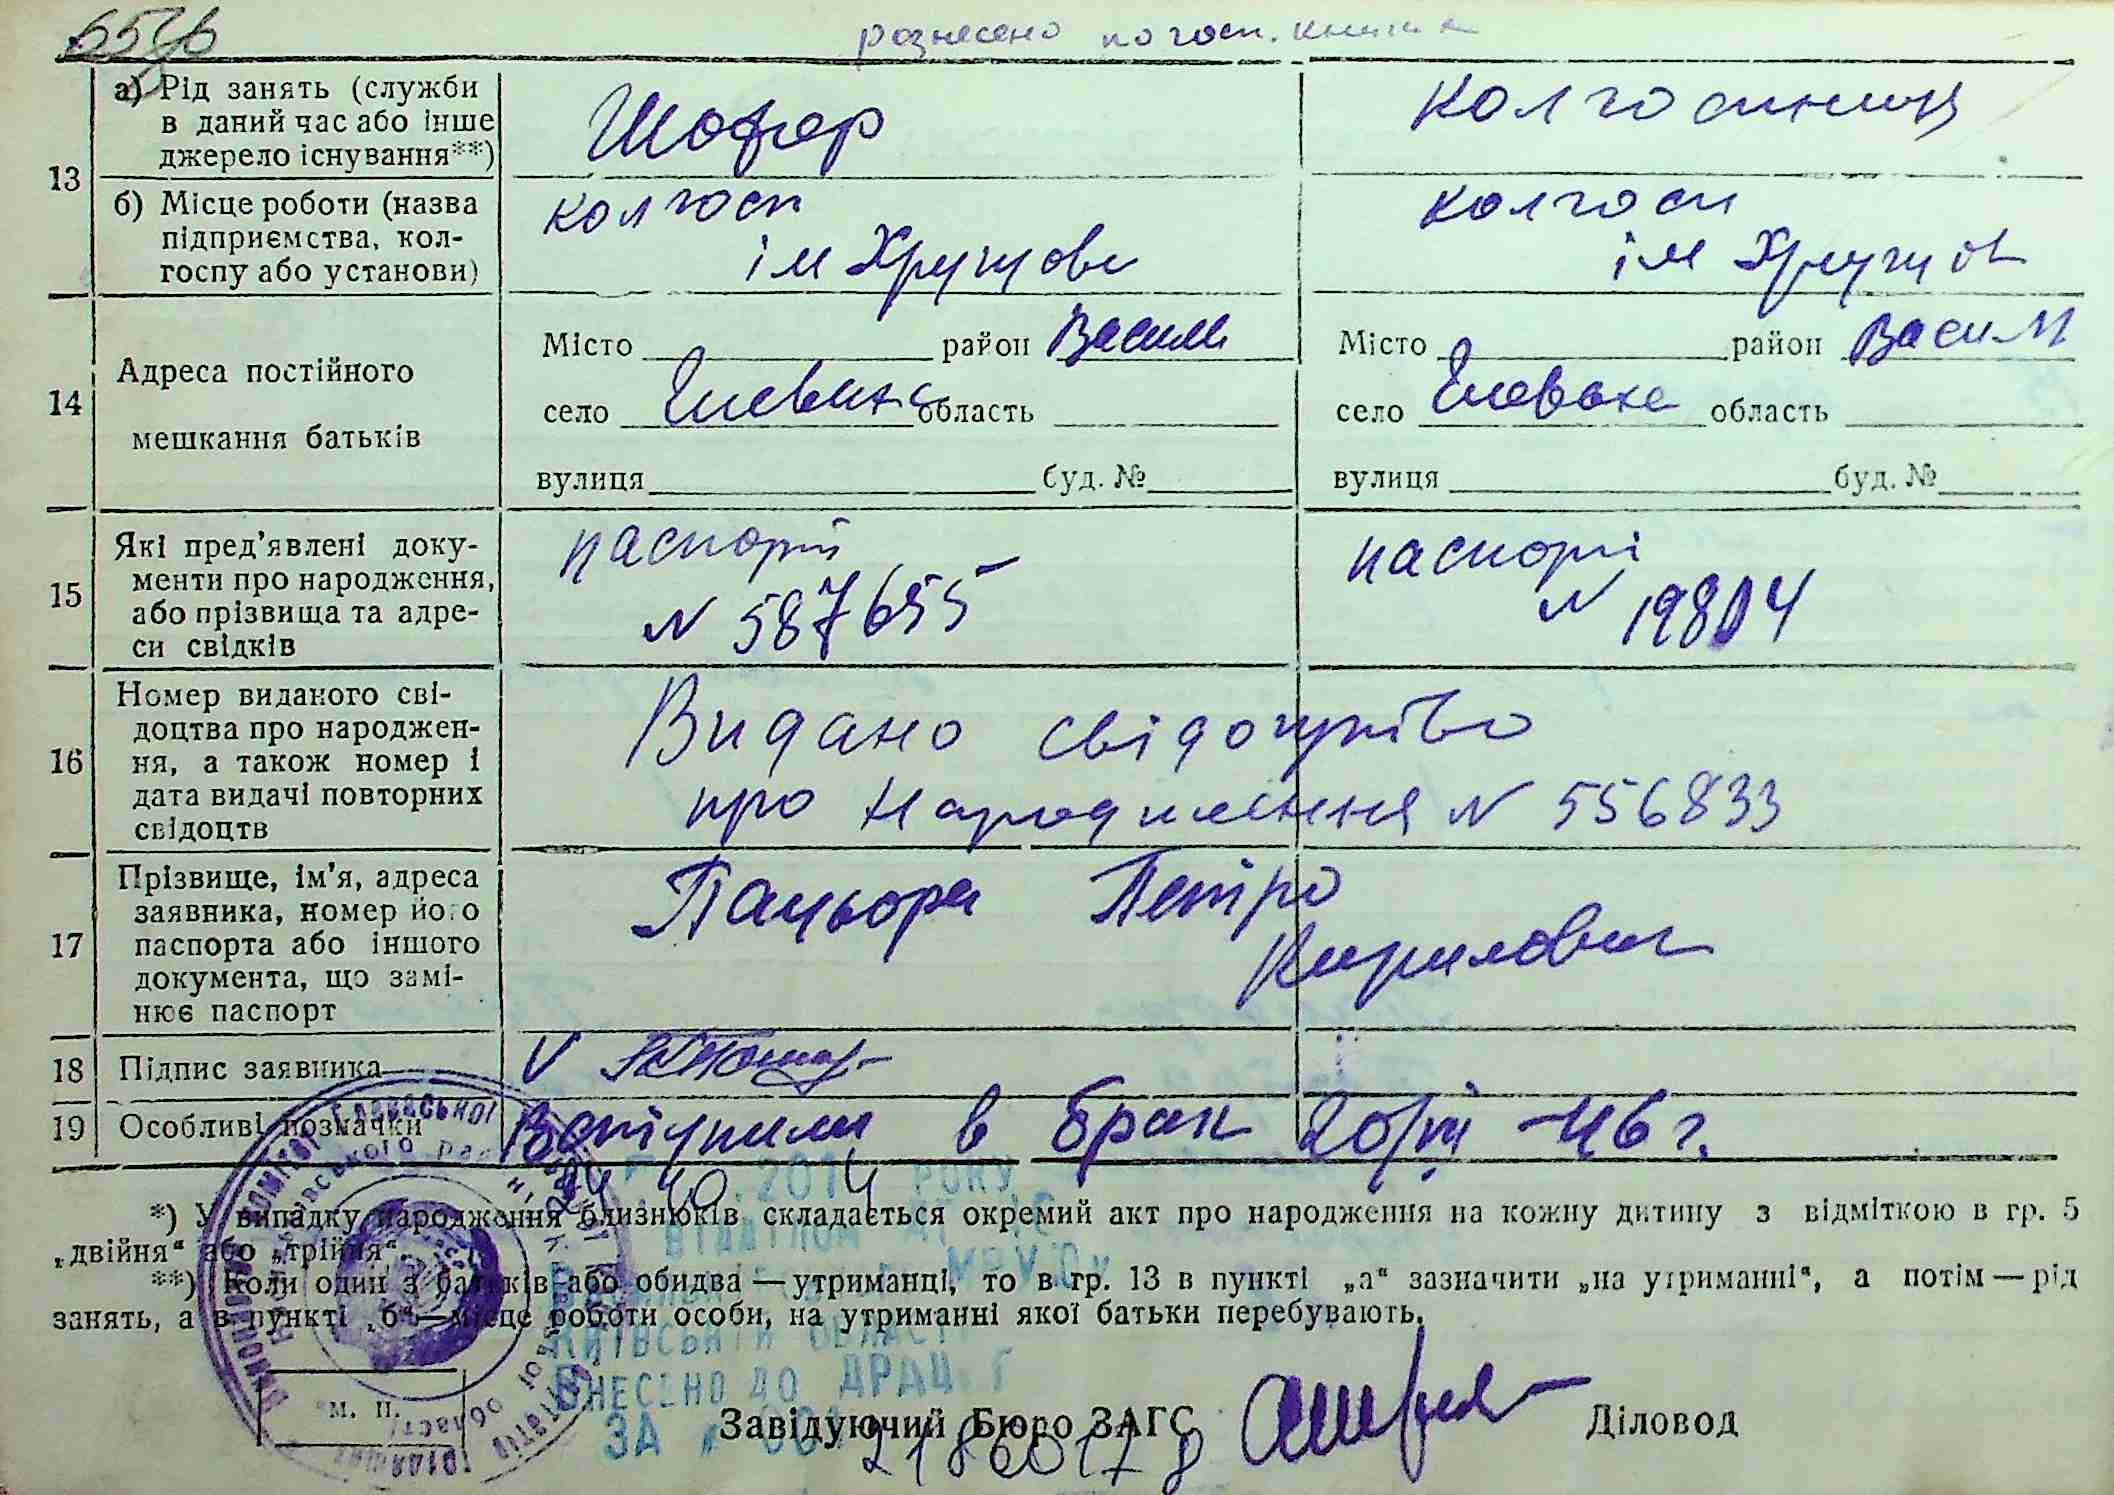 рознесено по госп. книги
13
а) Рід занять (служби
в даний час або інше
джерело існування**)
Шофер
колгоспниця
б) Місце роботи (назва
підприємства, кол-
госпу або установи)
колгосп
ім Хрущова
колгосп
ім Хрущов
14
Адреса постійного
мешкання батьків
Місто район Васильк
село область
вулиця буд. №
Місто район Васильк
село область
вулиця буд. №
15
Які пред'явлені доку-
менти про народження,
або прізвища та адре-
си свідків
паспорт
N 587655
паспорт
N 19804
16
Номер виданого сві-
доцтва про народжен-
ня, а також номер і
дата видачі повторних
свідоцтв
Видано свідоцтво
про народження N 556833
17
Прізвище, ім'я, адреса
заявника, номер його
паспорта або іншого
документа, що замі-
нює паспорт
Пацьора Петро
Кирилович
18 Підпис заявника V
19 Особливі позначки Вступили в брак 20/VII -46 г.
*) У випадку народження близнюків складається окремий акт про народження на кожну дитину з відміткою в гр. 5
„двійня“ або „трійня“.
**) Коли один з батьків або обидва — утриманці, то в гр. 13 в пункті „а“ зазначити „на утриманні“, а потім — рід
занять, а в пункті „б“ — місце роботи особи, на утриманні якої батьки перебувають.
2014 РОКУ
КИЇВСЬКІЙ ОБЛАСТІ
ВНЕСЕНО ДО ДРАЦ Г
ЗА
м. п.
Завідуючий Бюро ЗАГС Діловод